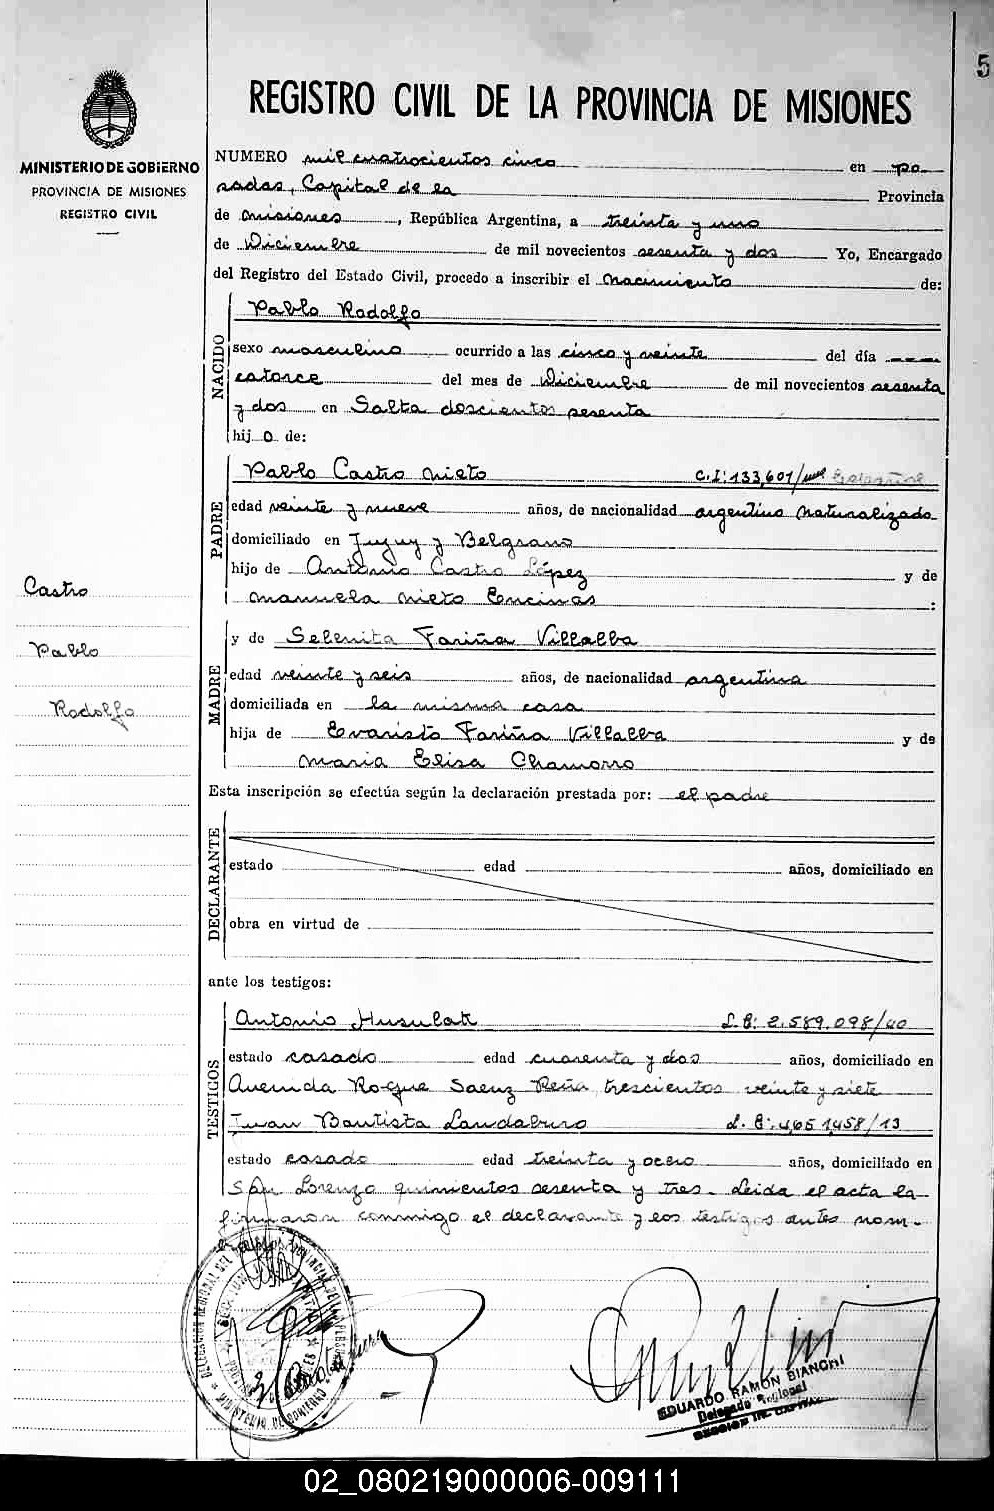 5
REGISTRO CIVIL DE LA PROVINCIA DE MISIONES
MINISTERIO DE GOBIERNO
PROVINCIA DE MISIONES
REGISTRO CIVIL
NUMERO mil cuatrocientos cinco en Po-
sadas, Capital de la Provincia
de Misiones, República Argentina, a treinta y uno
de Diciembre de mil novecientos sesenta y dos Yo, Encargado
del Registro del Estado Civil, procedo a inscribir el Nacimiento de:
NACIDO
Pablo Rodolfo
sexo masculino ocurrido a las cinco y veinte del día
catorce del mes de Diciembre de mil novecientos sesenta
y dos en Salta doscientos sesenta
hijo de:
PADRE
Pablo Castro Nieto C.I: 133,601/
edad veinte y nueve años, de nacionalidad argentino naturalizado
domiciliado en Jujuy y Belgrano
hijo de Antonio Castro López y de
Manuela Nieto Encinas :
Castro
Pablo
Rodolfo
MADRE
y de Selenita Fariña Villalba
edad veinte y seis años, de nacionalidad argentina
domiciliada en la misma casa
hija de Evaristo Fariña Villalba y de
Maria Elisa Chamorro
Esta inscripción se efectúa según la declaración prestada por: el padre
DECLARANTE
estado edad años, domiciliado en
obra en virtud de
ante los testigos:
TESTIGOS
Antonio Husulak L.E: 2.589.098/40
estado casado edad cuarenta y dos años, domiciliado en
Avenida Roque Saenz Peña trescientos veinte y siete
Juan Bautista Landaburo
estado casado edad treinta y ocho años, domiciliado en
San Lorenzo quinientos sesenta y tres. Leida el acta la
firmaron conmigo el declarante y los testigos antes nom-
EDUARDO RAMON BIANCHI
Delegado Regional
02_080219000006-009111